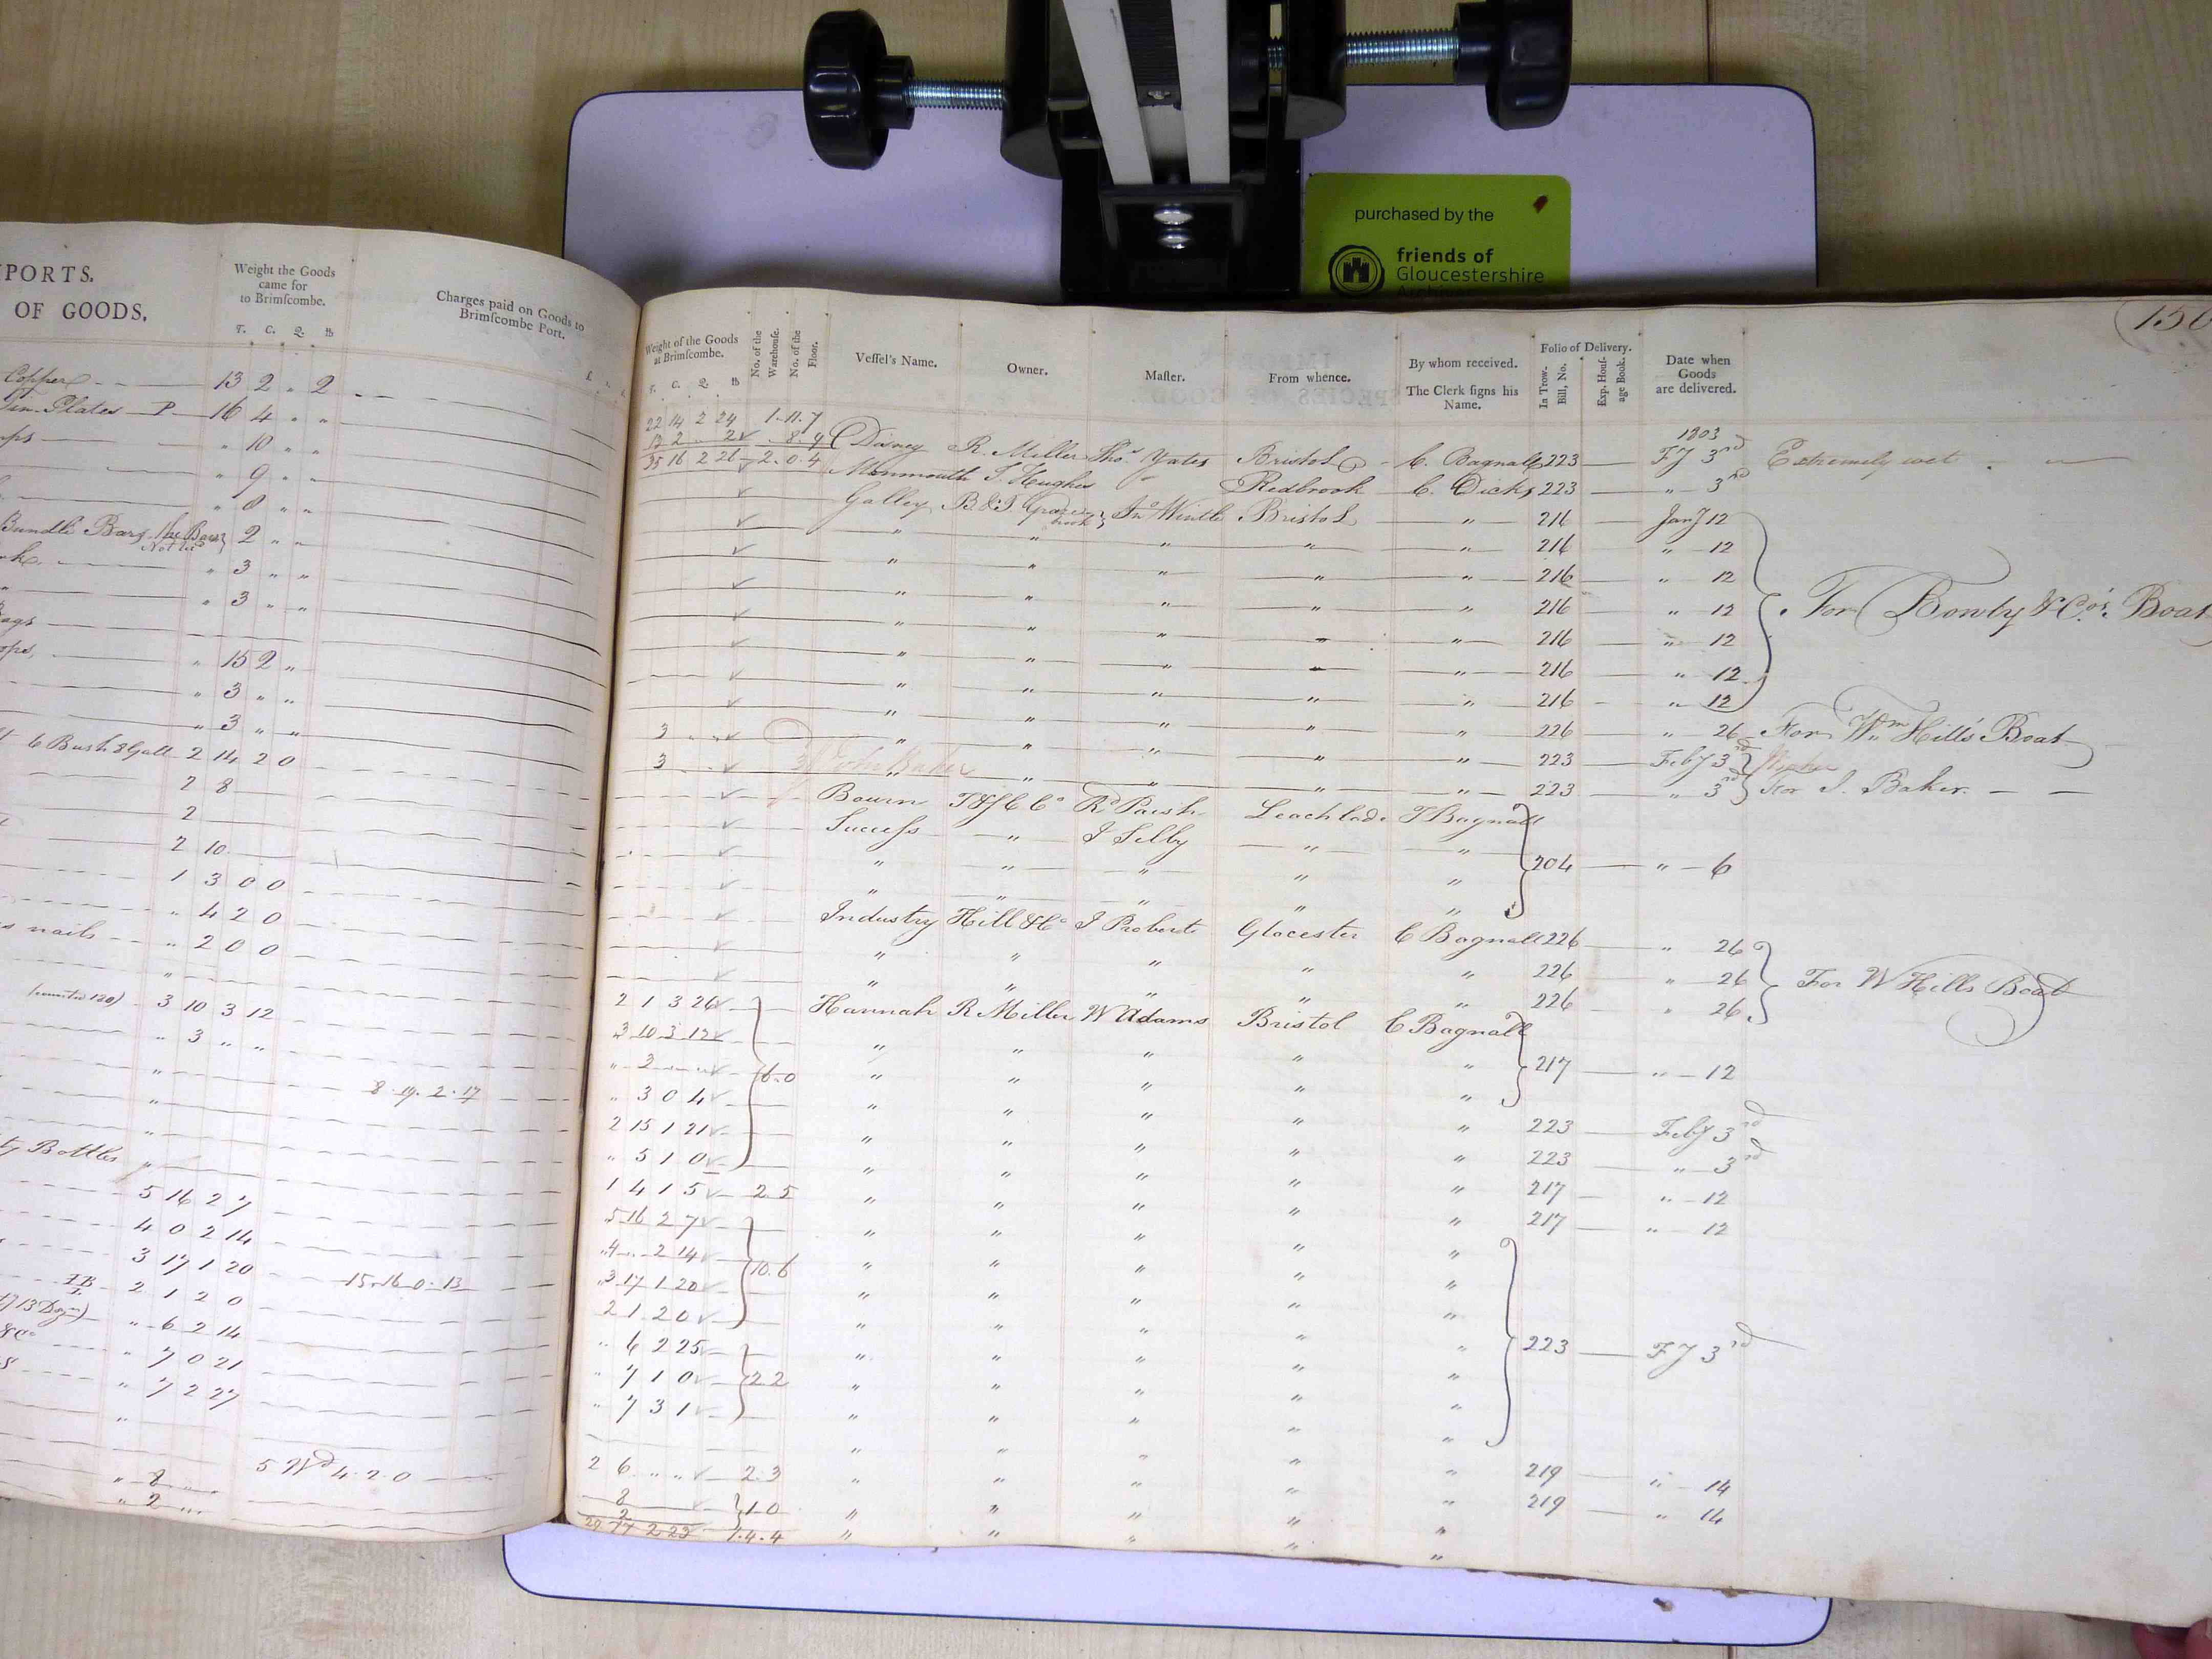 purchased by the
friends of
Gloucestershire
PORTS.
OF GOODS.
Weight the Goods
came for
to Brimſcombe.
T. C. Q. lb
Charges paid on Goods to
Brimſcombe Port.
Copper 13 2 " 2
Tin Plates P 16 4 " "
" 10 " "
" 9 " "
" 8 " "
Bundle Bars 2 " "
" 3 " "
" 3 " "
" 15 2 "
" 3 " "
" 3 " "
6 Bush 8 Gall 2 14 2 0
2 8
2
2 10
1 3 0 0
" 4 2 0
nails " 2 0 0
"
3 10 3 12
" 3 " "
" 8 . 19 . 2 . 17
"
"
Bottles "
5 16 2 7
4 0 2 14
3 17 1 20 15 . 16 . 0 . 13
IB 2 1 2 0
13 Dozn) " 6 2 14
&Co " 7 0 21
" 7 2 27
"
5 Wd 4 . 2 . 0
" 8 " "
" 2 " "
156
Weight of the Goods
at Brimſcombe.
T. C. Q. lb
No. of the
Warehouſe.
No. of the
Floor.
Veſſel's Name.
Owner.
Maſter.
From whence.
By whom received.
The Clerk ſigns his
Name.
Folio of Delivery.
In Trow-
Bill, No.
Exp. Houſ-
age Book.
Date when
Goods
are delivered.
22 14 2 24 1 . 11 . 7
1803
13 2 " 2 . 8 . 9 Disney R. Miller Thos Yates Bristol C. Bagnall 223 FY 3rd Extremely wet
35 16 2 26 2 . 0 . 4 Monmouth T. Hughes " Redbrook C. Dicks 223 " 3rd
Galley B & J Jno Wintle Bristol " 216 Jany 12
" " " " " 216 " 12
" " " " " 216 " 12
" " " " " 216 " 12 For Bowly & Co's. Boat
" " " " " 216 " 12
" " " " " 216 " 12
" " " " " 216 " 12
3 " " " " " " " 226 " 26 For Wm Hills Boat
3 " " " " " 223 Feby 3rd
" " " " " 223 " 3rd For J. Baker.
Bourn Rd Parsh Leachlade T Bagnall
Success " J Selby " "
" " " " " 204 " 6
" " " " "
Industry Hill & Co J Roberts Glocester C Bagnall 226 " 26
" " " " " 226 " 26 For W Hills Boat
" " " " " 226 " 26
2 1 3 26 Hannah R Miller W Adams Bristol C Bagnall
3 10 3 12 " " " " "
" 3 " " 6 . 0 " " " " " 217 " 12
" 3 0 4 " " " " "
2 15 1 21 " " " " " 223 Feby 3rd
" 5 1 0 " " " " " 223 " 3rd
1 4 1 5 2 . 5 " " " " " 217 " 12
5 16 2 7 " " " " " 217 " 12
4 " 2 14 10 . 6 " " " " "
3 17 1 20 " " " " "
2 1 2 0 " " " " "
" 6 2 25 " " " " " 223 FY 3rd
" 7 1 0 2 2 " " " " "
" 7 3 1 " " " " "
" " " " "
2 6 " " 2 . 3 " " " " " 219 " 14
8 1 . 0 " " " " " 219 " 14
2
29 17 2 23 1 . 4 . 4 " " " " "